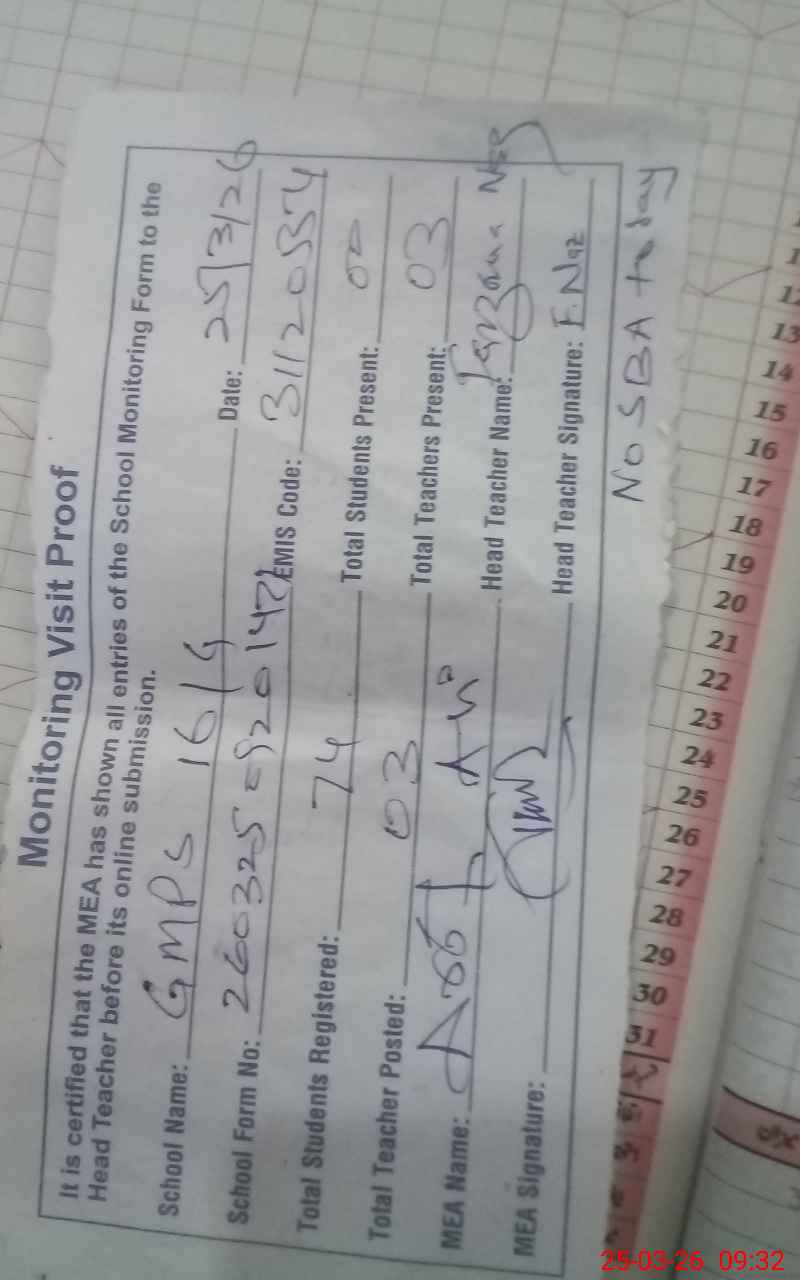 Monitoring Visit Proof
It is certified that the MEA has shown all entries of the School Monitoring Form to the
Head Teacher before its online submission.
School Name: GMPS 16/G Date: 25/3/26
School Form No: EMIS Code: 31120554
Total Students Registered: 74 Total Students Present: 00
Total Teacher Posted: 03 Total Teachers Present: 03
MEA Name: Head Teacher Name: Farzana Naz
MEA Signature: Head Teacher Signature: F.Naz
No SBA today
11
12
13
14
15
16
17
18
19
20
21
22
23
24
25
26
27
28
29
30
31
25-03-26 09:32